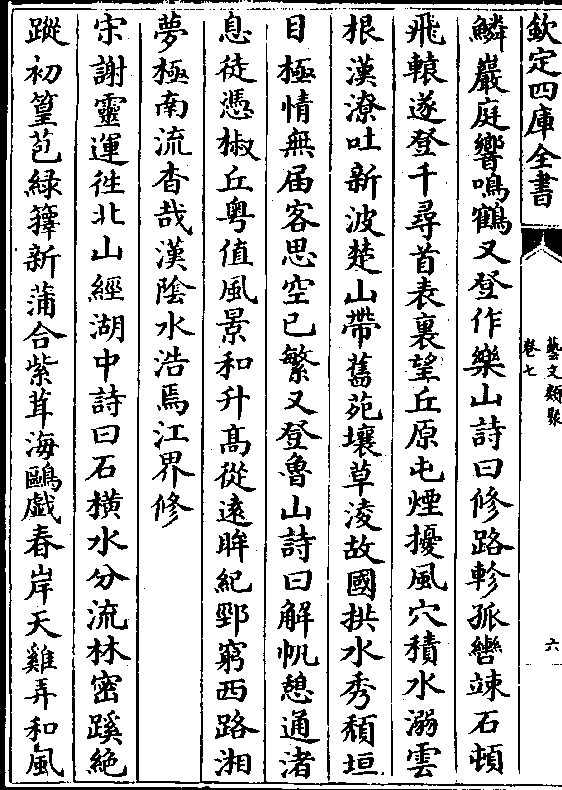 欽定四庫全書
藝文類聚
卷七
六
鱗巖庭響鳴鶴又登作樂山詩曰修路軫孤轡竦石頓
飛轅遂登千尋首表裏望丘原屯煙擾風穴積水溺雲
根漢潦吐新波楚山帶舊苑壤草淩故國拱水秀頹垣
目極情無屆客思空已繁又登魯山詩曰解帆憩通渚
息徒憑椒丘粤值風景和升髙從逺眸紀郢窮西路湘
夢極南流杳哉漢陰水浩焉江界修
宋謝靈運徃北山經湖中詩曰石橫水分流林密蹊絶
蹤初篁苞緑籜新蒲合紫茸海鷗戲春岸天雞弄和風